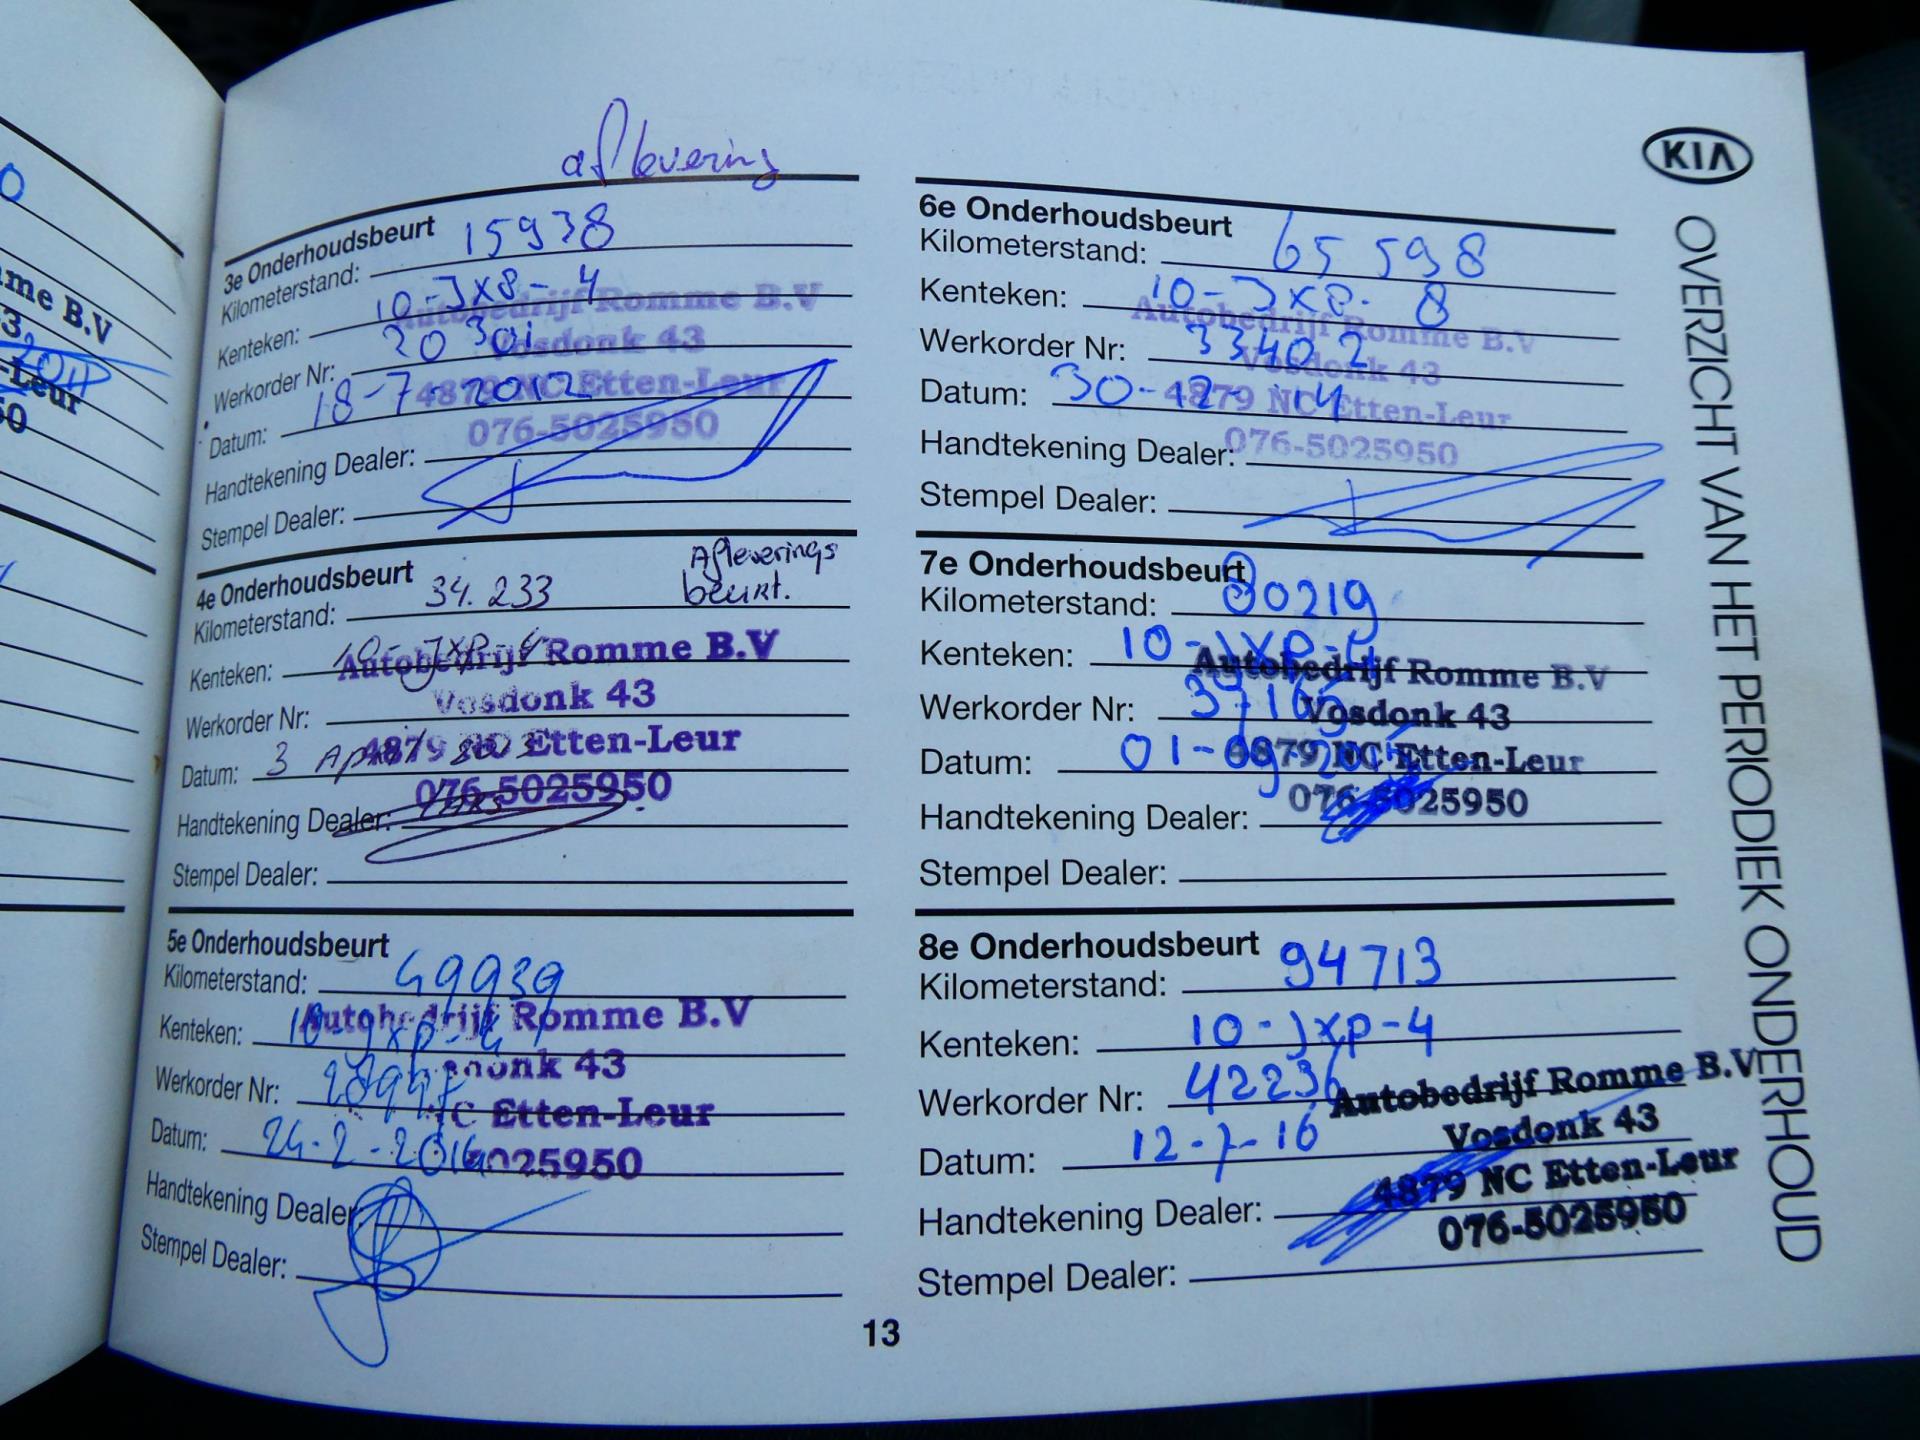 me B.V
-Leur
50
aflevering
3e Onderhoudsbeurt
Kilometerstand: 15938
Kenteken: 10-JXP-4
Autobedrijf Romme B.V
Werkorder Nr: 20301
Vosdonk 43
Datum: 18-7 2012
4879 NC Etten-Leur
076-5025950
Handtekening Dealer:
Stempel Dealer:
4e Onderhoudsbeurt
Afleverings
beurt.
Kilometerstand: 34.233
Kenteken: 10-JXP-4
Autobedrijf Romme B.V
Vosdonk 43
Werkorder Nr:
4879 NC Etten-Leur
Datum: 3 April
076-5025950
Handtekening Dealer:
Stempel Dealer:
5e Onderhoudsbeurt
Kilometerstand: 49939
Autobedrijf Romme B.V
Kenteken: 10-JXP-4
donk 43
Werkorder Nr:
NC Etten-Leur
Datum: 24-2-2014
5025950
Handtekening Dealer:
Stempel Dealer:
6e Onderhoudsbeurt
Kilometerstand: 65598
Kenteken: 10-JXP-8
Autobedrijf Romme B.V
Werkorder Nr: 33402
Vosdonk 43
Datum: 30-12-14
4879 NC Etten-Leur
076-5025950
Handtekening Dealer:
Stempel Dealer:
7e Onderhoudsbeurt
Kilometerstand: 80219
Kenteken: 10-JXP-4
Autobedrijf Romme B.V
Werkorder Nr: 37165
Vosdonk 43
Datum: 01-09-2015
4879 NC Etten-Leur
076-5025950
Handtekening Dealer:
Stempel Dealer:
8e Onderhoudsbeurt
Kilometerstand: 94713
Kenteken: 10-JXP-4
Werkorder Nr: 42236
Autobedrijf Romme B.V
Vosdonk 43
Datum: 12-7-16
4879 NC Etten-Leur
076-5025950
Handtekening Dealer:
Stempel Dealer:
13
KIA
OVERZICHT VAN HET PERIODIEK ONDERHOUD